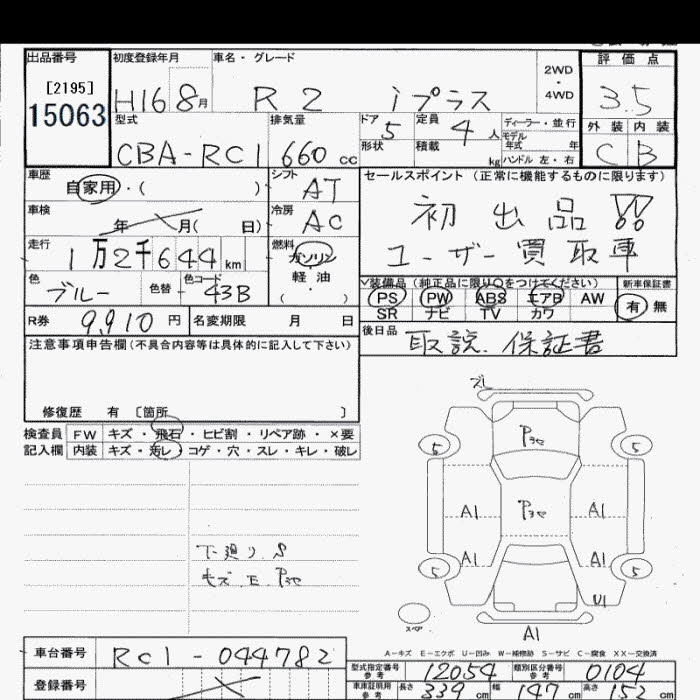 出品番号 初度登録年月 車名・グレード 2WD・4WD 評価点
[2195]
15063 H16 8月 R2 iプラス 3.5
型式 排気量 ドア 5 定員 4人 ディーラー・並行 外装 内装
モデル年式 年
CBA-RC1 660cc 形状 積載 kg ハンドル 左・右 C B
車歴 シフト セールスポイント (正常に機能するものに限ります)
自家用・( ) AT 初出品!!
車検 年 月( 日) 冷房 AC
走行 1万2千644km 燃料 ガソリン ユーザー買取車
軽油
( ・ )
色 ブルー 色替 色コード 43B
装備品(純正品に限り○をつけてください) 新車保証書
PS PW ABS エアB AW 有 無
SR ナビ TV カワ
R券 9,910円 名変期限 月 日
後日品 取説、保証書
注意事項申告欄(不具合内容等は具体的に記入して下さい)
修復歴 有 〔箇所 〕
検査員 FW キズ・飛石・ヒビ割・リペア跡・×要
記入欄 内装 キズ・汚レ・コゲ・穴・スレ・キレ・破レ
ズレ
5 5
A1 A1
A1 A1
5 5
U1
スペア
A1
下廻りS
キズ、E、
A-キズ E-エクボ U-凹み W-補修跡 S-サビ C-腐食 XX-交換済
車台番号 RC1-044782
型式指定番号 参考 12054 類別区分番号 参考 0104
登録番号
車庫証明用 参考 長さ 339cm 幅 147cm 高さ 152cm